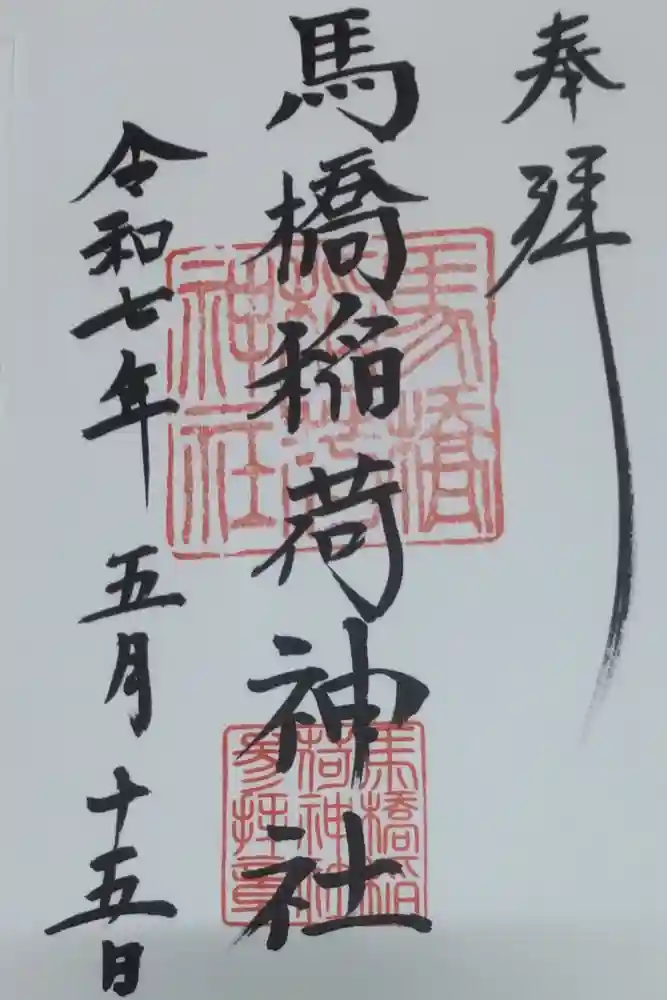 奉拝
馬橋稲荷神社
令和七年 五月 十五日
馬橋
稲荷
神社
馬橋稲
荷神社
参拝章